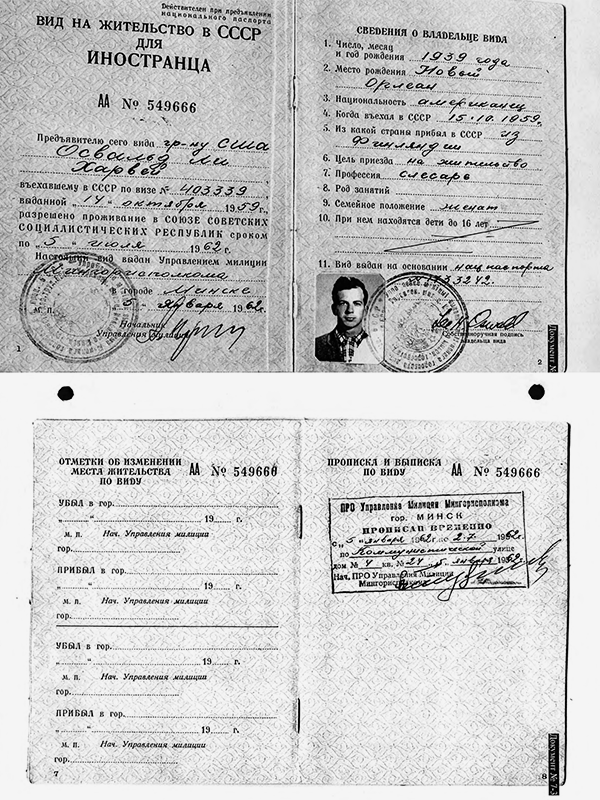 Действителен при предъявлении
национального паспорта
ВИД НА ЖИТЕЛЬСТВО в СССР
ДЛЯ
ИНОСТРАНЦА
АА № 549666
Предъявителю сего вида гр-ну США
Освальд Ли
Харвей
въехавшему в СССР по визе № 403339,
выданной „14“ октября 1959 г.,
разрешено проживание в СОЮЗЕ СОВЕТСКИХ
СОЦИАЛИСТИЧЕСКИХ РЕСПУБЛИК сроком
по „5“ июля 1962 г.
Настоящий вид выдан Управлением милиции
Мингорисполкома
в городе Минске
5 января 1962 г.
м. п.
Начальник
Управления Милиции
1
СВЕДЕНИЯ О ВЛАДЕЛЬЦЕ ВИДА
1. Число, месяц
и год рождения 1939 года
2. Место рождения Новый
Орлеан
3. Национальность американец
4. Когда въехал в СССР 15.10.1959 г.
5. Из какой страны прибыл в СССР из
Финляндии
6. Цель приезда на жительство
7. Профессия слесарь
8. Род занятий
9. Семейное положение женат
10. При нем находятся дети до 16 лет
11. Вид выдан на основании нац. паспорта
1733242.
Собственноручная подпись
владельца вида
2
Документ №
ОТМЕТКИ ОБ ИЗМЕНЕНИИ
МЕСТА ЖИТЕЛЬСТВА
ПО ВИДУ
АА № 549666
УБЫЛ в гор.
„ “ 19 г.
м. п. Нач. Управления милиции
гор.
ПРИБЫЛ в гор.
„ “ 19 г.
м. п. Нач. Управления милиции
гор.
УБЫЛ в гор.
„ “ 19 г.
м. п. Нач. Управления милиции
гор.
ПРИБЫЛ в гор.
„ “ 19 г.
м. п. Нач. Управления милиции
гор.
7
ПРОПИСКА И ВЫПИСКА
ПО ВИДУ
АА № 549666
ПРО Управления Милиции Мингорисполкома
гор. МИНСК
ПРОПИСАН ВРЕМЕННО
с „5“ января 1962 г. по 2-7. 1962 г.
по Коммунистической улице
дом № 4 кв. № 24 5. января 1962 г.
Нач. ПРО Управления Милиции
Мингорисполкома
8
Документ № 7-